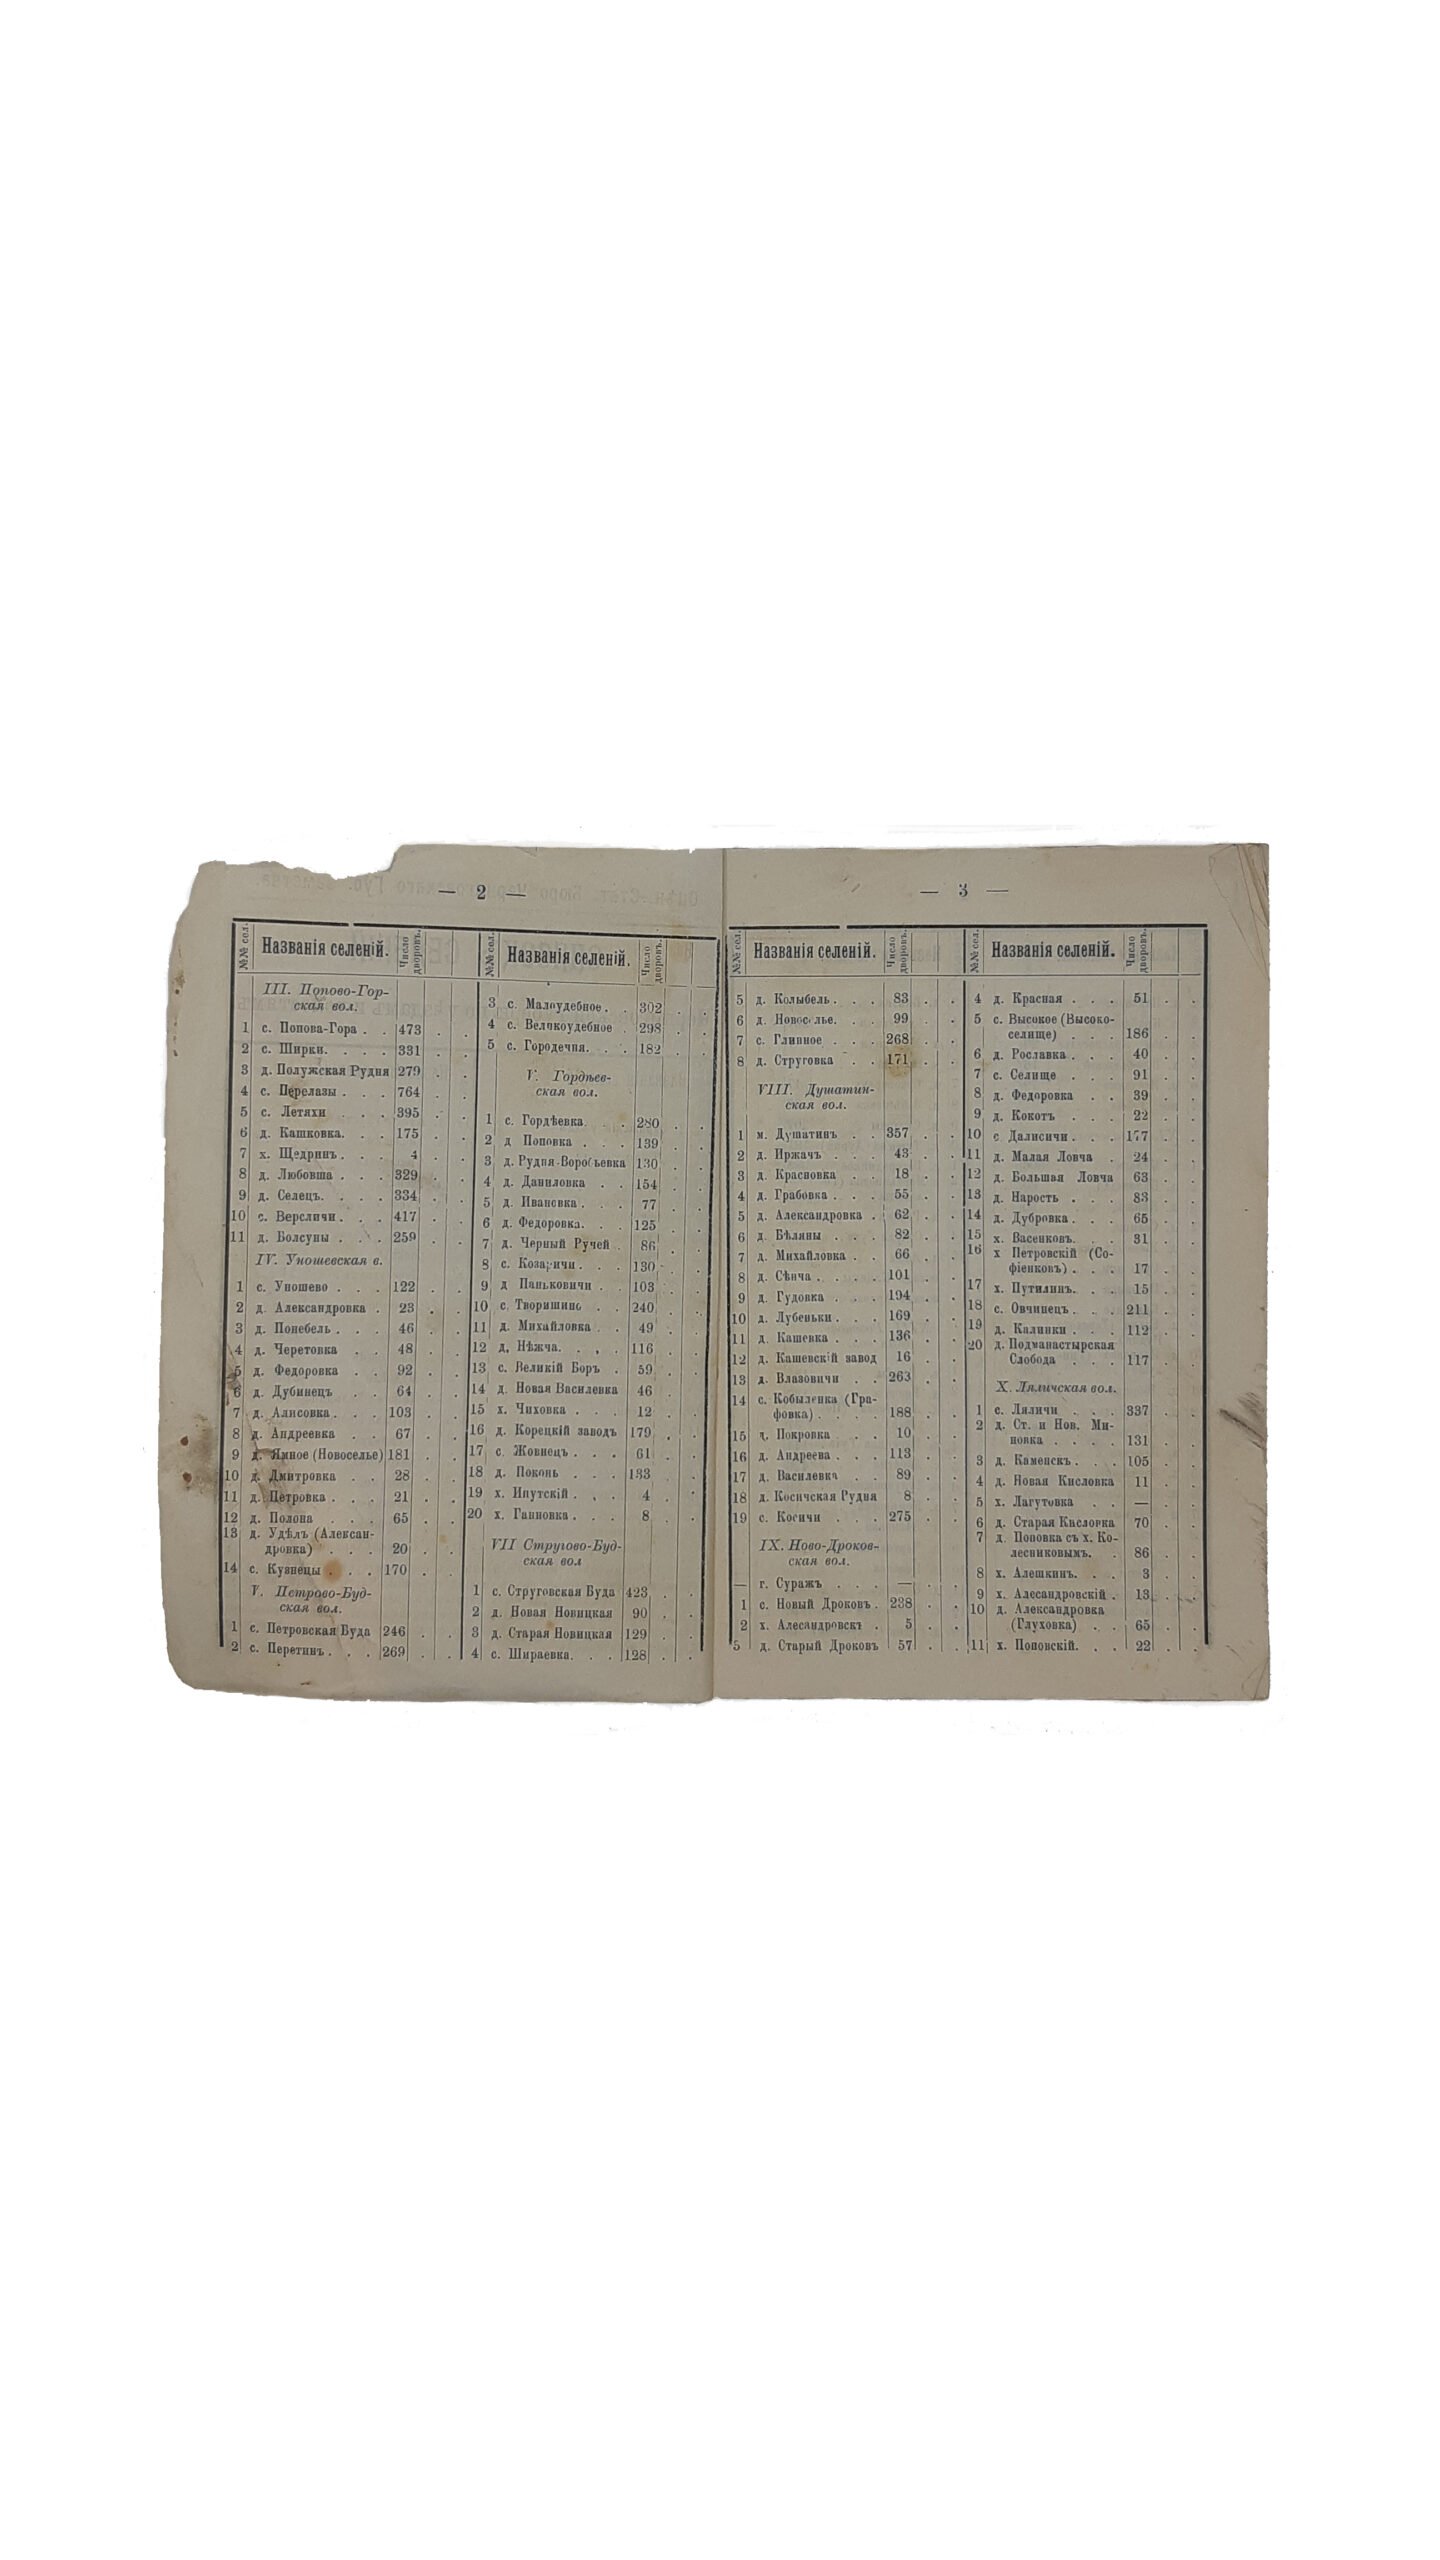 — 2 —
№№ сел.
Названія селеній.
Число дворовъ.
III. Попово-Гор-
ская вол.
1 с. Попова-Гора . . 473 . .
2 с. Ширки. . . . 331 . .
3 д. Полужская Рудня 279 . .
4 с. Перелазы . . . 764 . .
5 с. Летяхи . . . 395 . .
6 д. Кашковка. . . 175 . .
7 х. Щедринъ. . . 4 . .
8 д. Любовша . . . 329 . .
9 д. Селецъ. . . . 334 . .
10 с. Версличи. . . 417 . .
11 д. Болсуны . . . 259 . .
IV. Уношевская в.
1 с. Уношево . . . 122 . .
2 д. Александровка . 23 . .
3 д. Понебель . . . 46 . .
4 д. Черетовка . . 48 . .
5 д. Федоровка . . 92 . .
6 д. Дубинецъ . . 64 . .
7 д. Алисовка . . . 103 . .
8 д. Андреевка . . 67 . .
9 д. Ямное (Новоселье) 181 . .
10 д. Дмитровка . . 28 . .
11 д. Петровка . . . 21 . .
12 д. Полона . . . 65 . .
13 д. Удѣлъ (Алексан-
дровка) . . . 20 . .
14 с. Кузнецы . . . 170 . .
V. Петрово-Буд-
ская вол.
1 с. Петровская Буда 246 . .
2 с. Перетинъ . . . 269 . .
№№ сел.
Названія селеній.
Число дворовъ.
3 с. Малоудебное. . 302 . .
4 с. Великоудебное . 298 . .
5 с. Городечня. . . 182 . .
V. Гордѣев-
ская вол.
1 с. Гордѣевка. . . 280 . .
2 д Поповка . . . 139 . .
3 д. Рудня-Воробьевка 130 . .
4 д. Даниловка . . 154 . .
5 д. Ивановка . . . 77 . .
6 д. Федоровка. . . 125 . .
7 д. Черный Ручей . 86 . .
8 с. Козаричи . . . 130 . .
9 д Паньковичи . . 103 . .
10 с. Творишино . . 240 . .
11 д. Михайловка . . 49 . .
12 д. Нѣжча. . . . 116 . .
13 с. Великій Боръ . 59 . .
14 д. Новая Василевка 46 . .
15 х. Чиховка . . . 12 . .
16 д. Корецкій заводъ 179 . .
17 с. Жовнецъ . . . 61 . .
18 д. Поконь . . . 133 . .
19 х. Ипутскій . . . 4 . .
20 х. Ганновка . . . 8 . .
VII Стругово-Буд-
ская вол
1 с. Струговская Буда 423 . .
2 д. Новая Новицкая 90 . .
3 д. Старая Новицкая 129 . .
4 с. Шираевка. . . 128 . .
— 3 —
№№ сел.
Названія селеній.
Число дворовъ.
5 д. Колыбель . . . 83 . .
6 д. Новоселье. . . 99 . .
7 с. Глинное . . . 268 . .
8 д. Струговка . . 171 . .
VIII. Душатин-
ская вол.
1 м. Душатинъ . . 357 . .
2 д. Иржачъ . . . 43 . .
3 д. Красновка . . 18 . .
4 д. Грабовка . . . 55 . .
5 д. Александровка . 62 . .
6 д. Бѣляны . . . 82 . .
7 д. Михайловка . . 66 . .
8 д. Сѣнча . . . . 101 . .
9 д. Гудовка . . . 194 . .
10 д. Лубеньки . . . 169 . .
11 д. Кашевка . . . 136 . .
12 д. Кашевскій завод 16 . .
13 д. Влазовичи . . 263 . .
14 с. Кобыленка (Гра-
фовка) . . . . 188 . .
15 д. Покровка . . 10 . .
16 д. Андреева . . . 113 . .
17 д. Василевка . . 89 . .
18 д. Косичская Рудня 8 . .
19 с. Косичи . . . 275 . .
IX. Ново-Дроков-
ская вол.
— г. Суражъ . . . — . .
1 с. Новый Дроковъ . 238 . .
2 х. Алесандровскъ . 5 . .
5 д. Старый Дроковъ 57 . .
№№ сел.
Названія селеній.
Число дворовъ.
4 д. Красная . . . 51 . .
5 с. Высокое (Высоко-
селище) . . . 186 . .
6 д. Рославка . . . 40 . .
7 с. Селище . . . 91 . .
8 д. Федоровка . . 39 . .
9 д. Кокотъ . . . 22 . .
10 с Далисичи . . . 177 . .
11 д. Малая Ловча . 24 . .
12 д. Большая Ловча 63 . .
13 д. Нарость . . . 83 . .
14 д. Дубровка . . . 65 . .
15 х. Васенковъ. . . 31 . .
16 х Петровскій (Со-
фіенковъ) . . . 17 . .
17 х. Путилинъ. . . 15 . .
18 с. Овчинецъ . . . 211 . .
19 д. Калинки . . . 112 . .
20 д. Подманастырская
Слобода . . . 117 . .
X. Ляличская вол.
1 с. Ляличи . . . 337 . .
2 д. Ст. и Нов. Ми-
новка . . . . 131 . .
3 д. Каменскъ . . . 105 . .
4 д. Новая Кисловка 11 . .
5 х. Лагутовка . . — . .
6 д. Старая Кисловка 70 . .
7 д. Поповка съ х. Ко-
лесниковымъ. . 86 . .
8 х. Алешкинъ. . . 3 . .
9 х. Алесандровскій . 13 . .
10 д. Александровка
(Глуховка) . . 65 . .
11 х. Поповскій. . . 22 . .